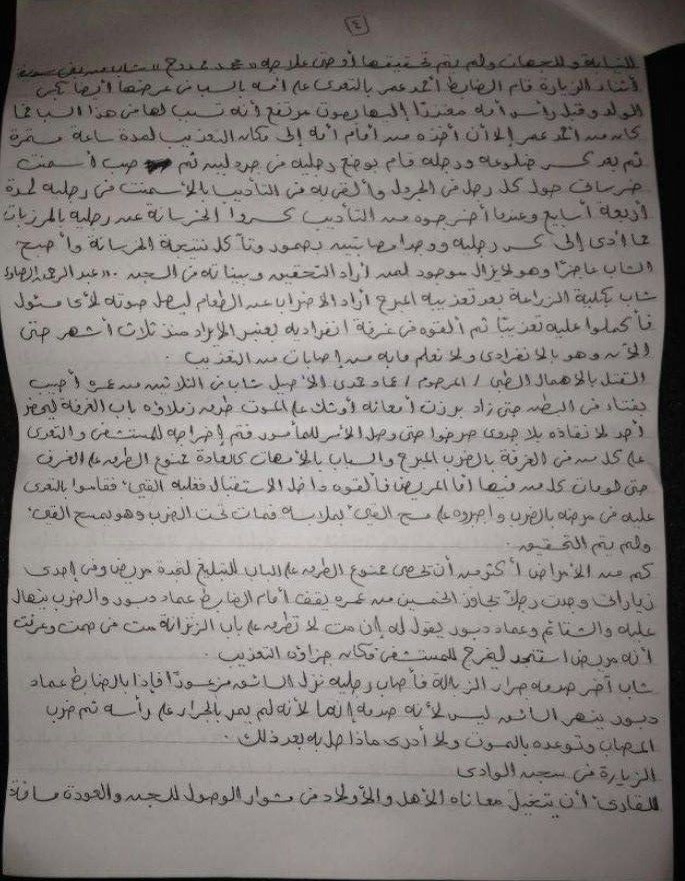 ٤
للنيابة وللجهات ولم يتم تحقيقها أو حتى علاجه «محمد ممدوح» شاب من بنى سويف
أثناء الزيارة قام الضابط أحمد عمر بالتعدى على أمه بالسب فى عرضها أيضا بكى
الولد وقبل رأس أمه معتذرًا إليها بصوت مرتفع أنه تسبب لها من هذا السباب فما
كان من أحمد عمر إلا أن أخذه من أمام أمه إلى مكان التعذيب لمدة ساعة مستمرة
ثم بعد كسر ضلوعه ورجله قام بوضع رجليه فى جردلين ثم صب أسمنت
خرسان حول كل رجل فى الجردل وألقى به فى التأديب بالأسمنت فى رجليه لمدة
أربعة أسابيع وعندما أخرجوه من التأديب كسروا الخرسانة عن رجليه بالمرزبات
مما أدى إلى كسر رجليه ووضع امصابتين بصمور وتآكل نتيجة الخرسانة وأصبح
الشاب عاجزًا وهو لايزال موجود لمن أراد التحقيق وبياناته فى السجن .. «عبد الرحمن
شاب بكلية الزراعة بعد تعذيبه المبرح أراد الاضراب عن الطعام ليصل صوته لأى مسئول
فأكملوا عليه تعذيبًا ثم ألقوه فى غرفة انفرادية بعنبر الايراد منذ ثلاث أشهر حتى
الآن وهو بالانفرادى ولا نعلم مابه من إصابات من التعذيب .
القتل بالاهمال الطبى / المرحوم / عماد حمدى الأصيل شاب فى الثلاثين من عمره أصيب
بفتاء فى البطن حتى زاد برزت أمعائه أوشك على الموت طرق زملاؤه باب الغرفة ليحضر
أحد لانقاذه بلا جدوى صرخوا حتى وصل الأمر للمأمور فتم إخراجه للمستشفى والتعدى
على كل من فى الغرفة بالضرب المبرح والسباب بالأمهات كالعادة ممنوع الطرق على الغرف
حتى لومات كل من فيها أما المريض فألقوه داخل الاستقبال فغلبه القيء، فقاموا بالتعدى
عليه فى مرضه بالضرب واجبروه على مسح القيء بملابسه فمات تحت الضرب وهو يمسح القيء،
ولم يتم التحقيق .
كم من الأمراض أكثر من أن تحصى ممنوع الطرق على الباب للتبليغ لنجدة مريض وفى إحدى
زياراتى وجدت رجلاً تجاوز الخمسين من عمره يقف أمام الضابط عماد دبور والضرب ينهال
عليه والشتائم وعماد دبور يقول له إن مت لا تطرق على باب الزنزانة مت فى صمت وعرفت
أنه مريض استنجد ليخرج للمستشفى فكان جزاؤه التعذيب .
شاب آخر صدمه جرار الزبالة فأصاب رجليه نزل السائق مزعورًا فإذا بالضابط عماد
دبور ينهر السائق ليس لأنه صدمه إنما لأنه لم يمر بالجرار على رأسه ثم ضرب
المصاب وتوعده بالموت ولا أدرى ماذا حل به بعد ذلك .
الزيارة فى سجن الوادى
للقارئ أن يتخيل معاناه الأهل والأولاد فى مشوار الوصول للسجن والعودة مسافة